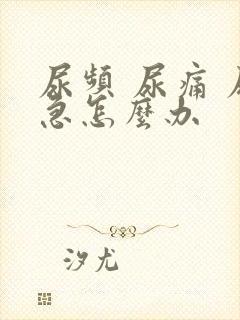 尿頻 尿痛 尿
急怎麼办
汐尤